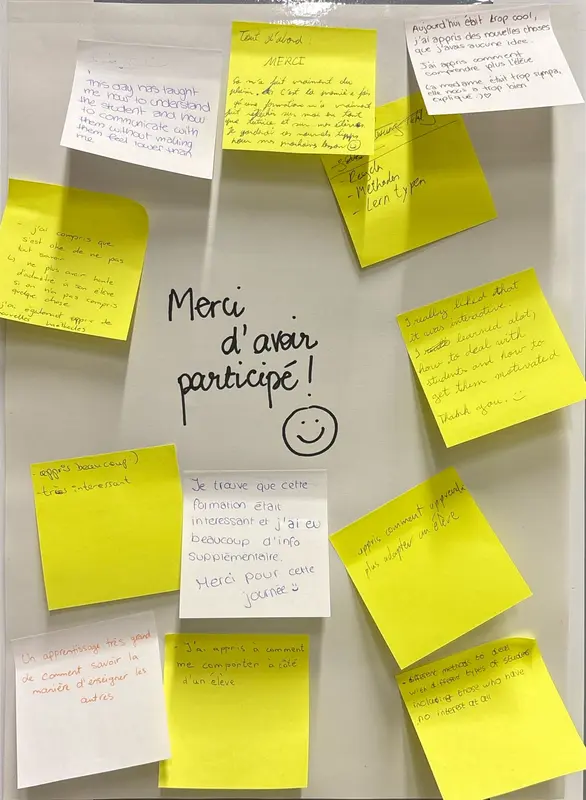 This day has taught
me how to understand
the student and how
to communicate with
them without making
them feel lower than
me
Tout d'abord
MERCI
Ça m'a fait vraiment du
plaisir, c'est la première fois
qu'une formation m'a vraiment
fait réfléchir sur moi en tant
que tutrice et sur mes élèves.
Je garderai ces nouvels
pour mes prochains
Aujourd'hui était trop cool,
j'ai appris des nouvelles choses
que j'avais aucune idée..
J'ai appris comment
comprendre plus l'élève
La madame était trop sympa,
elle nous a trop bien
expliqué
- Methoden
- Lern typen
- j'ai compris que
s'est oke de ne pas
tout savoir
ne pas avoir honte
d'admetre à son élève
si on n'a pas compris
quelque chose
j'ai également appris de
nouvelles methodes
Merci
d'avoir
participé!
I really liked that
it was interactive.
I learned alot,
how to deal with
students and how to
get them motivated
Thank you. :)
- appris beaucoup :)
- très interessant
Je trouve que cette
formation était
interessant et j'ai eu
beaucoup d'info
supplémentaire.
Merci pour cette
journée
appris comment apprendre
plus adapter un élève
Un apprentissage très grand
de comment savoir la
manière d'enseigner les
autres
- J'ai appris à comment
me comporter à côté
d'un élève
- different methods to deal
with different types of students
including those who have
no interest at all